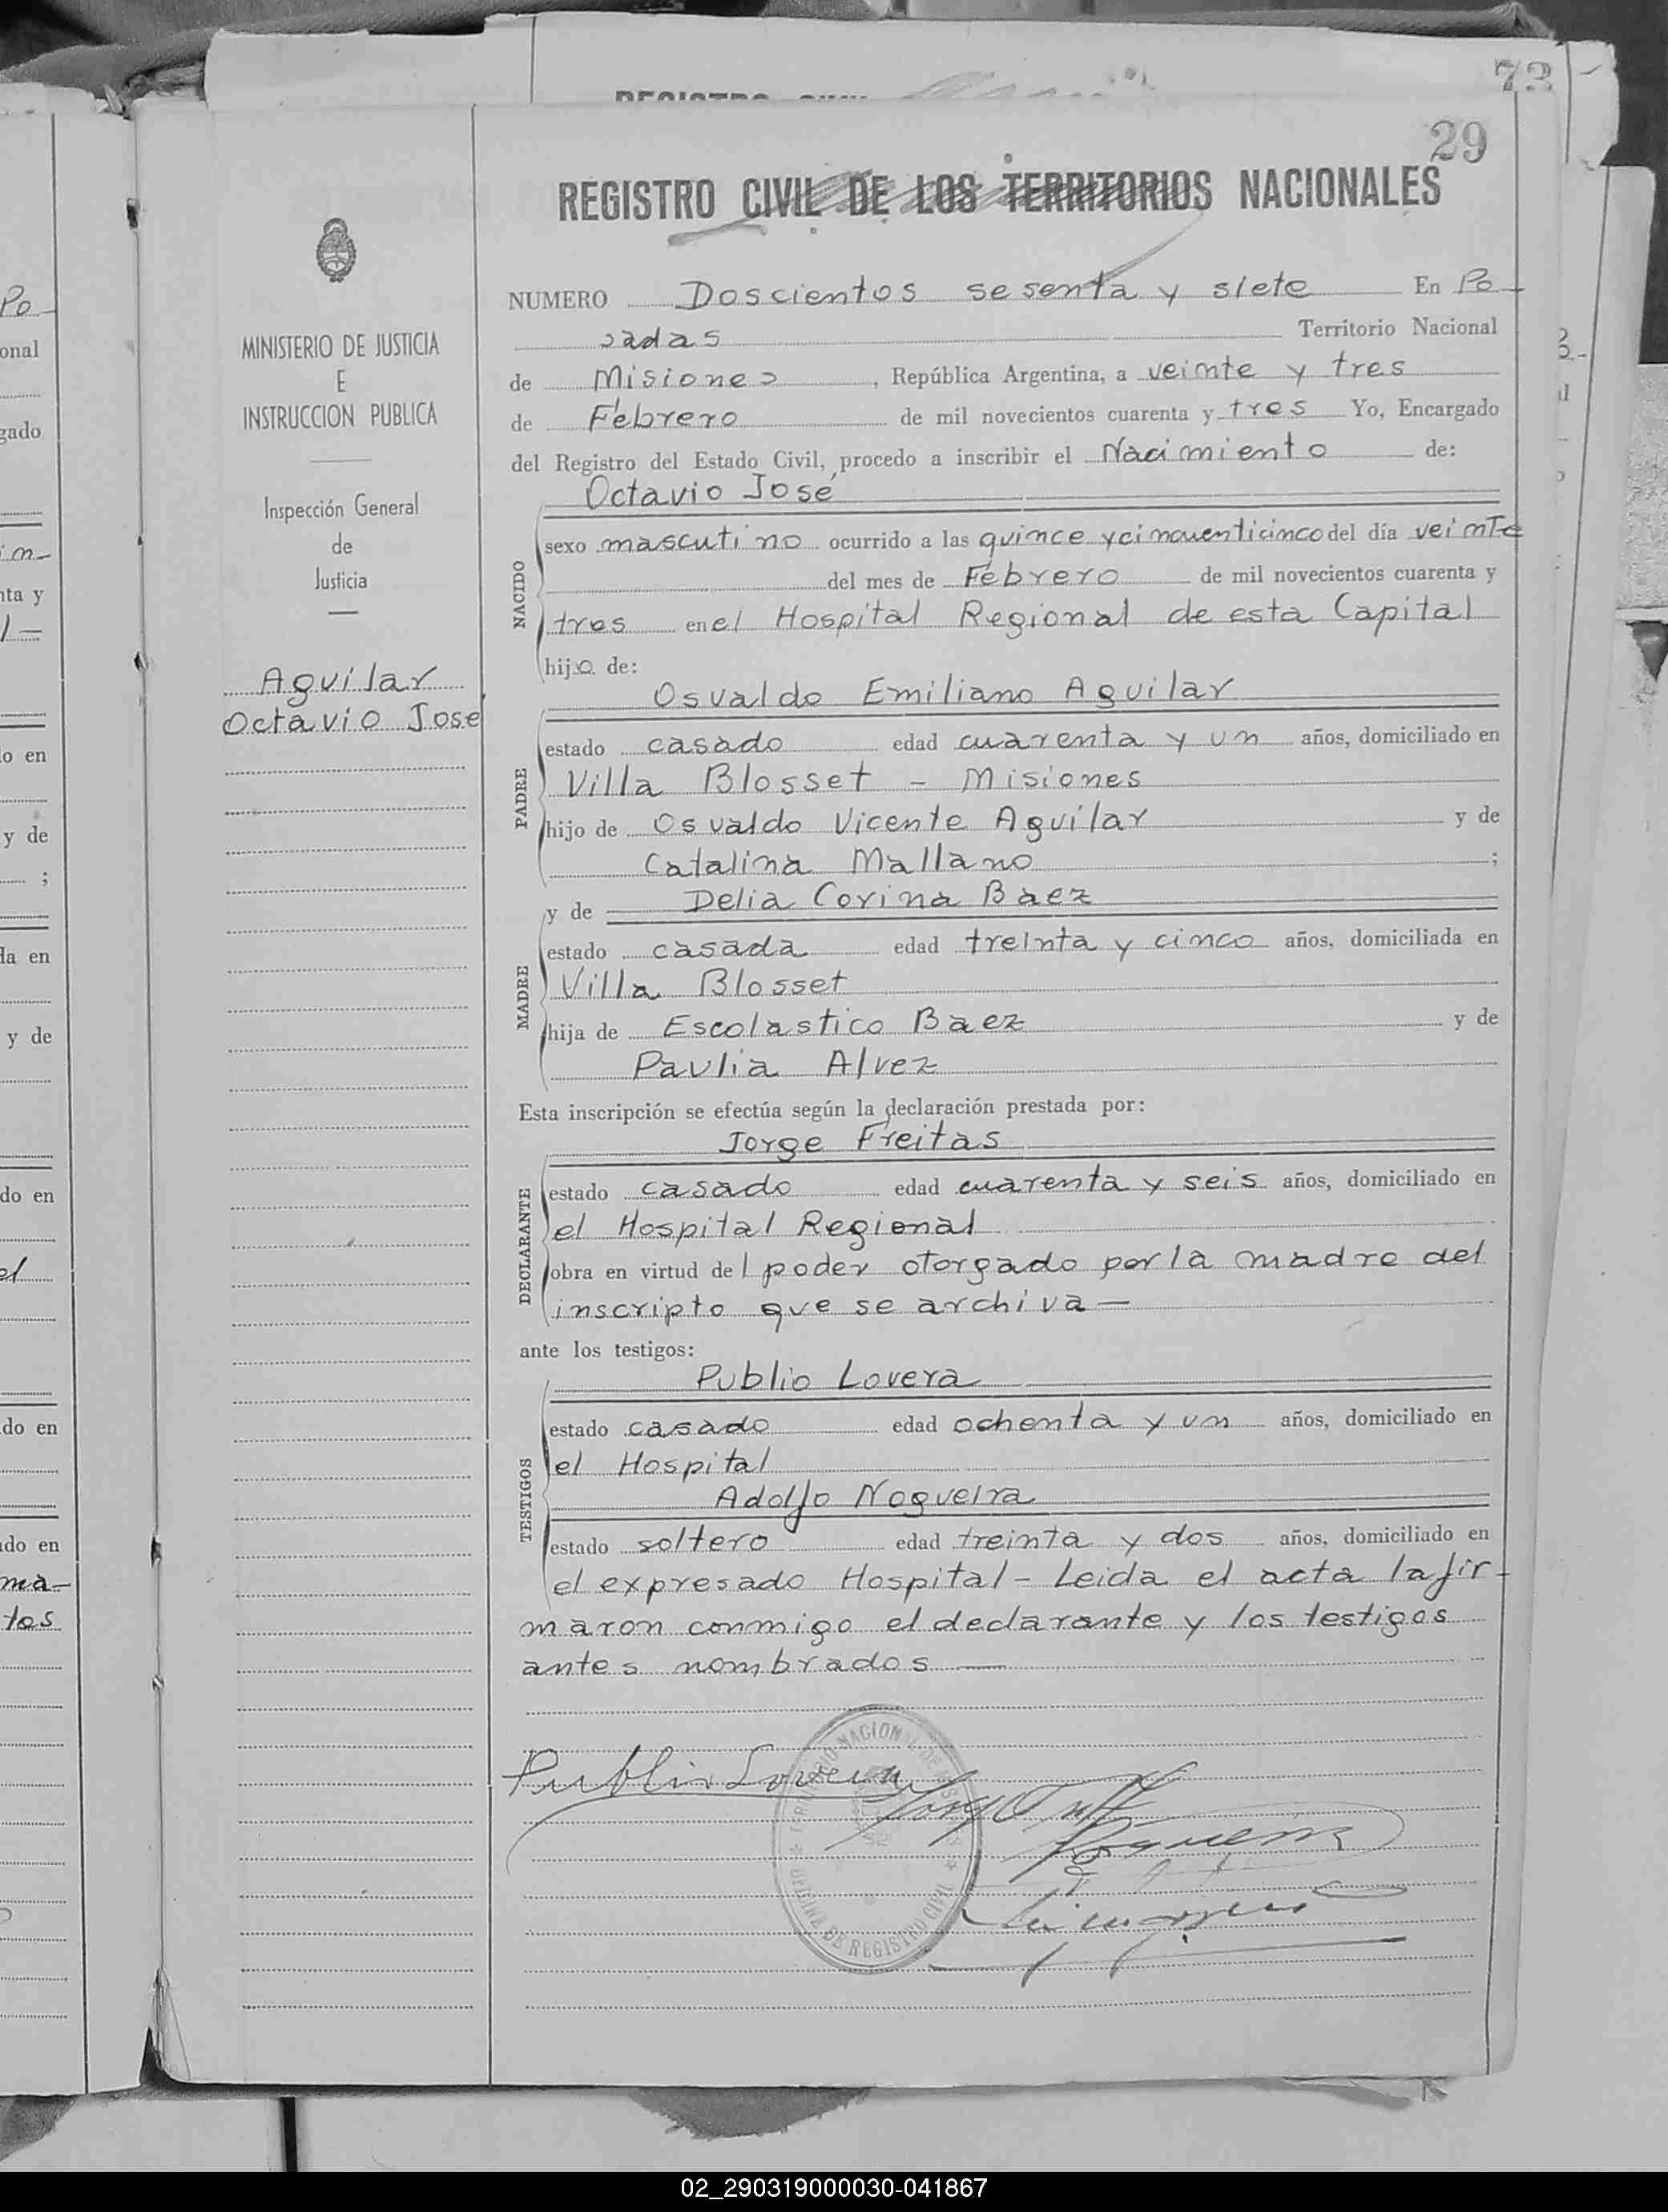 73
29
REGISTRO CIVIL DE LOS TERRITORIOS NACIONALES
MINISTERIO DE JUSTICIA
E
INSTRUCCION PUBLICA
Inspección General
de
Justicia
Aguilar
Octavio Jose
NUMERO Doscientos sesenta y siete En Po
sadas Territorio Nacional
de Misiones, República Argentina, a veinte y tres
de Febrero de mil novecientos cuarenta y tres Yo, Encargado
del Registro del Estado Civil, procedo a inscribir el Nacimiento de:
Octavio José
NACIDO
sexo masculino ocurrido a las quince y cincuenticinco del día veinte
del mes de Febrero de mil novecientos cuarenta y
tres en el Hospital Regional de esta Capital
hijo de:
Osvaldo Emiliano Aguilar
PADRE
estado casado edad cuarenta y un años, domiciliado en
Villa Blosset - Misiones
hijo de Osvaldo Vicente Aguilar y de
Catalina Mallano ;
y de Delia Corina Baez
MADRE
estado casada edad treinta y cinco años, domiciliada en
Villa Blosset
hija de Escolastico Baez y de
Paulia Alvez
Esta inscripción se efectúa según la declaración prestada por:
Jorge Freitas
DECLARANTE
estado casado edad cuarenta y seis años, domiciliado en
el Hospital Regional
obra en virtud del poder otorgado por la madre del
inscripto que se archiva —
ante los testigos:
Publio Lovera
TESTIGOS
estado casado edad ochenta y un años, domiciliado en
el Hospital
Adolfo Nogueira
estado soltero edad treinta y dos años, domiciliado en
el expresado Hospital - Leida el acta la fir-
maron conmigo el declarante y los testigos
antes nombrados —
Publio Lovera
TERRITORIO NACIONAL DE MISIONES
OFICINA DE REGISTRO CIVIL
02_290319000030-041867